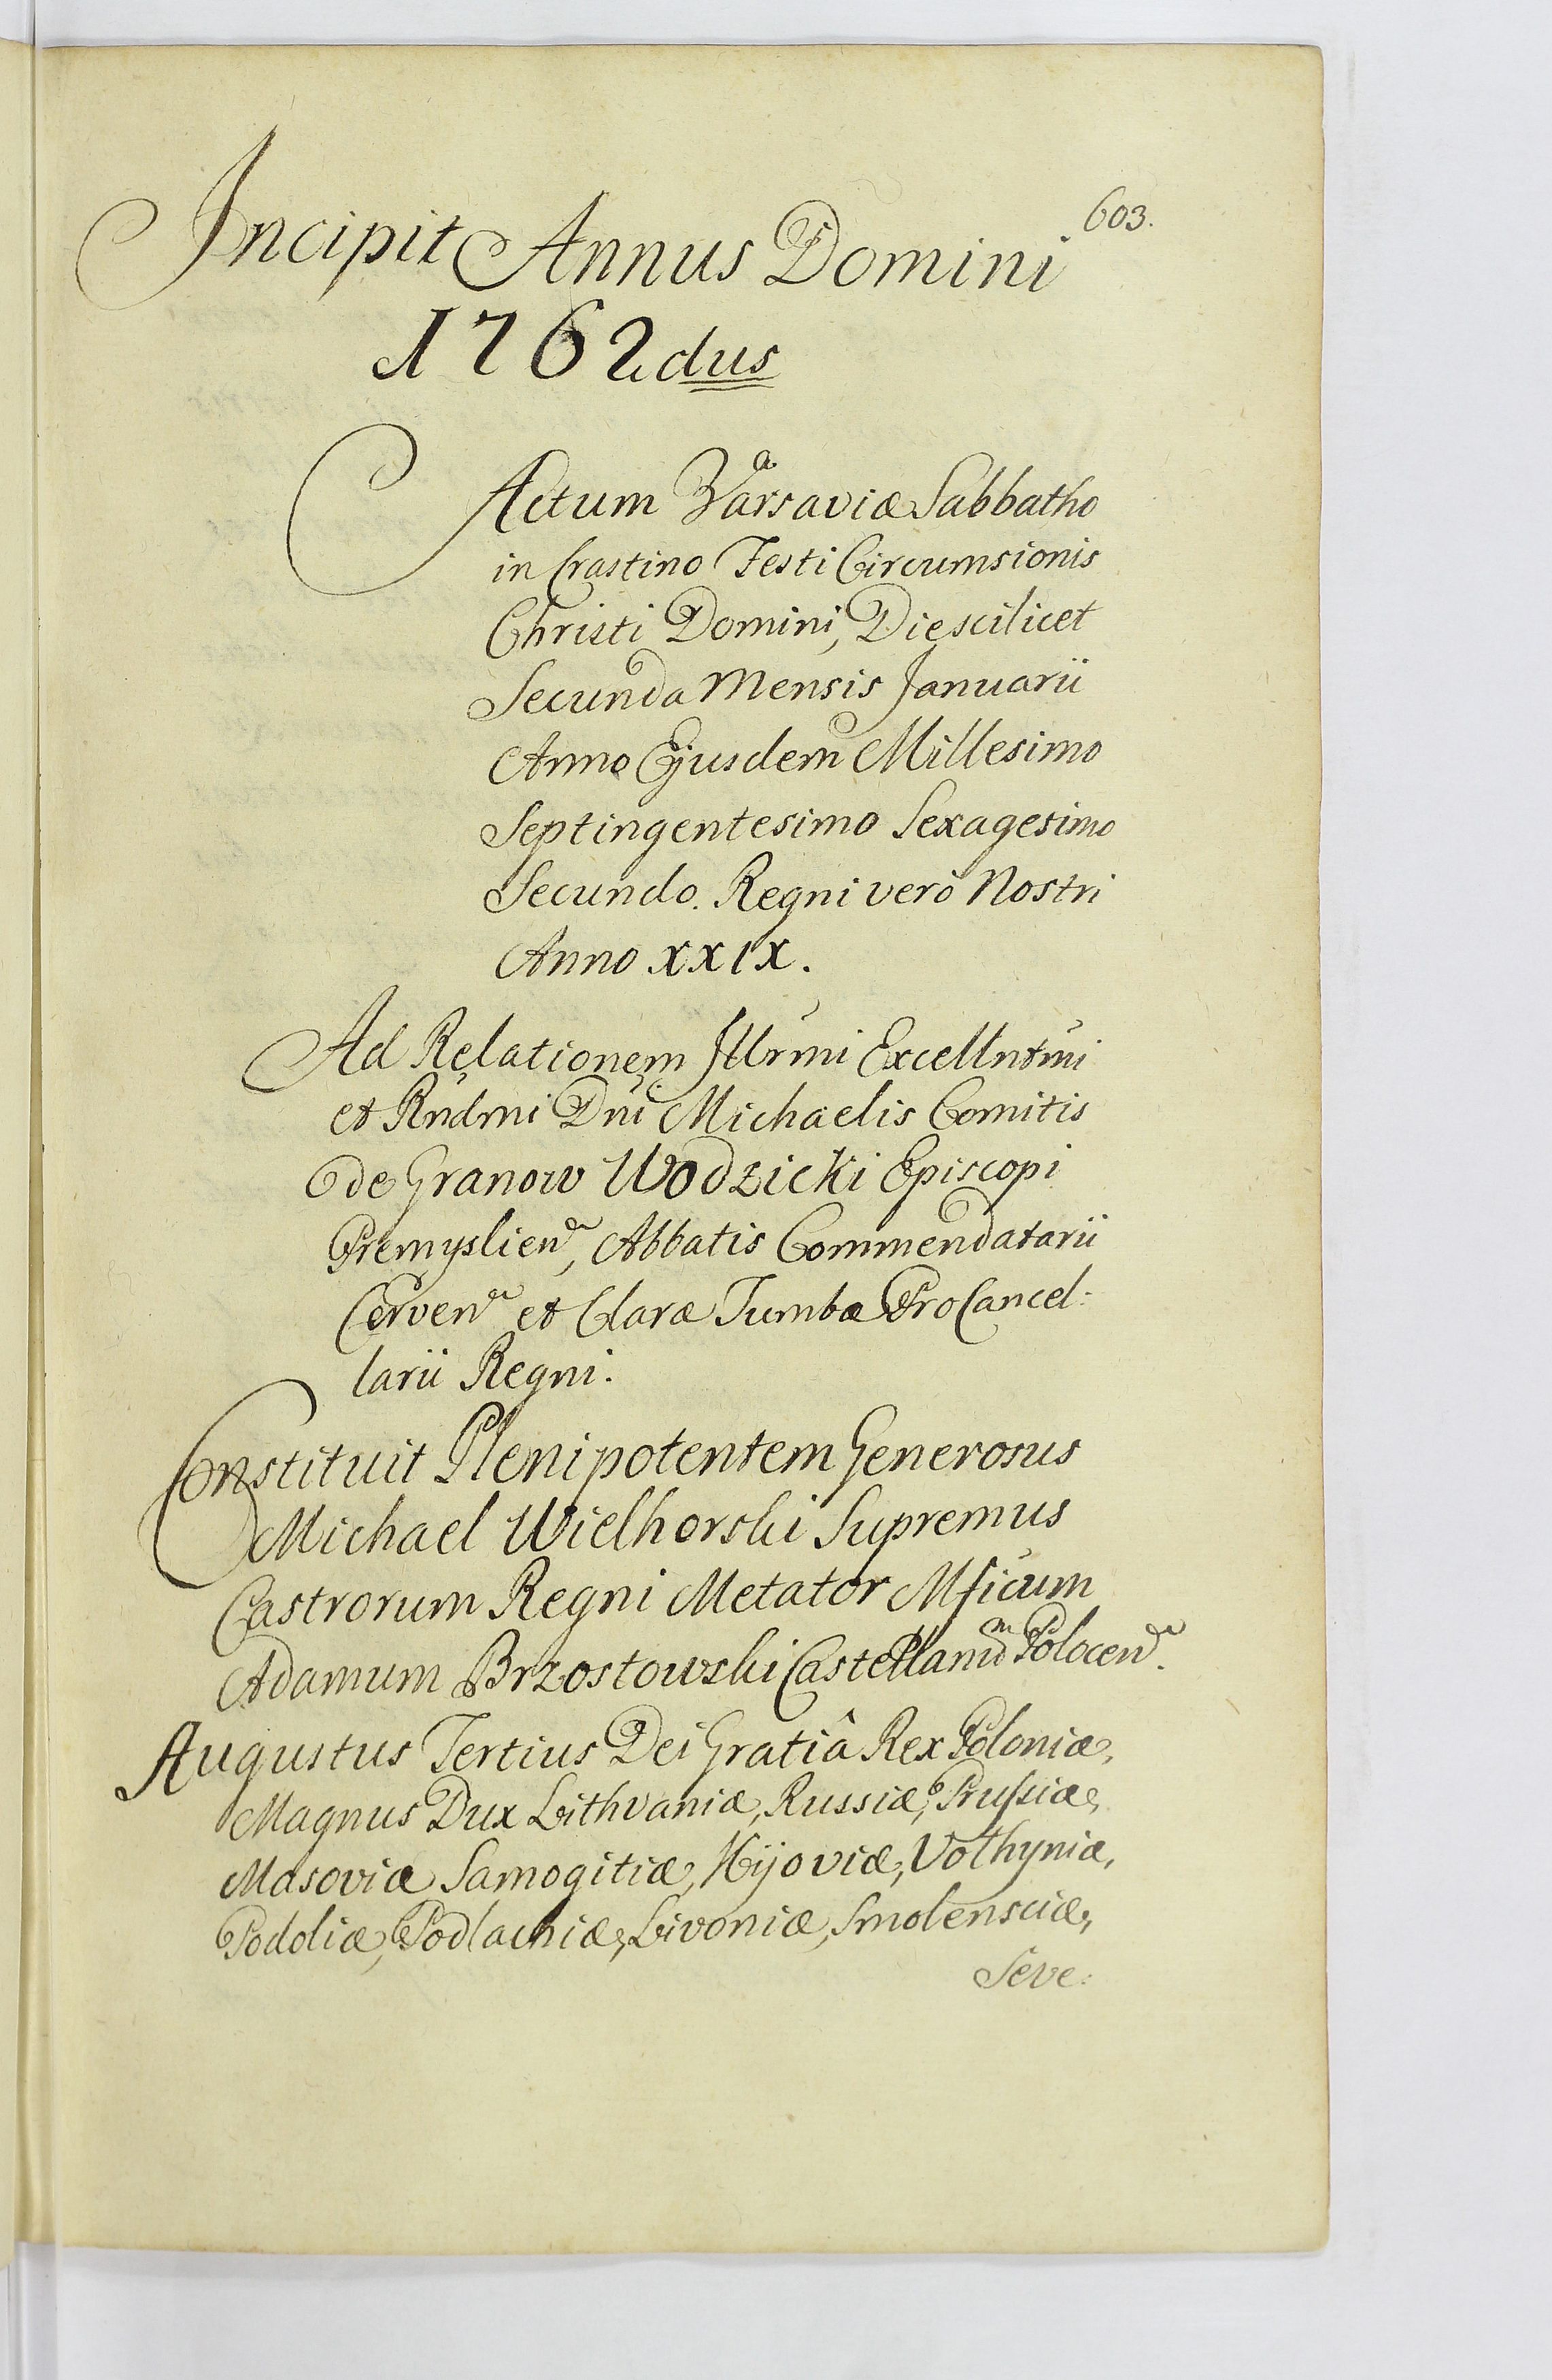 603.
Incipit Annus Domini
1762dus
Actum Varsaviæ Sabbatho
in Crastino Festi Circumsionis
Christi Domini, Die scilicet
Secunda Mensis Januarii
Anno Ejusdem Millesimo
Septingentesimo Sexagesimo
Secundo. Regni verò Nostri
Anno XXIX.
Ad Relationem Illrmi Excellntmi
et Rndmi Dni Michaelis Comitis
de Granow Wodzicki Episcopi
Premyslien, Abbatis Commendatarii
Cerven et Claræ Tumbæ ProCancel:
larii Regni.
Constituit Plenipotentem Generosus
Michael Wielhorski Supremus
Castrorum Regni Metator Mficum
Adamum Brzostowski Castellanum Polocen.
Augustus Tertius Dei Gratiâ Rex Poloniæ,
Magnus Dux Lithvaniæ, Russiæ, Prussiæ,
Masoviæ Samogitiæ, Kijoviæ, Volhyniæ,
Podoliæ, Podlachiæ, Livoniæ, Smolensciæ,
Seve: